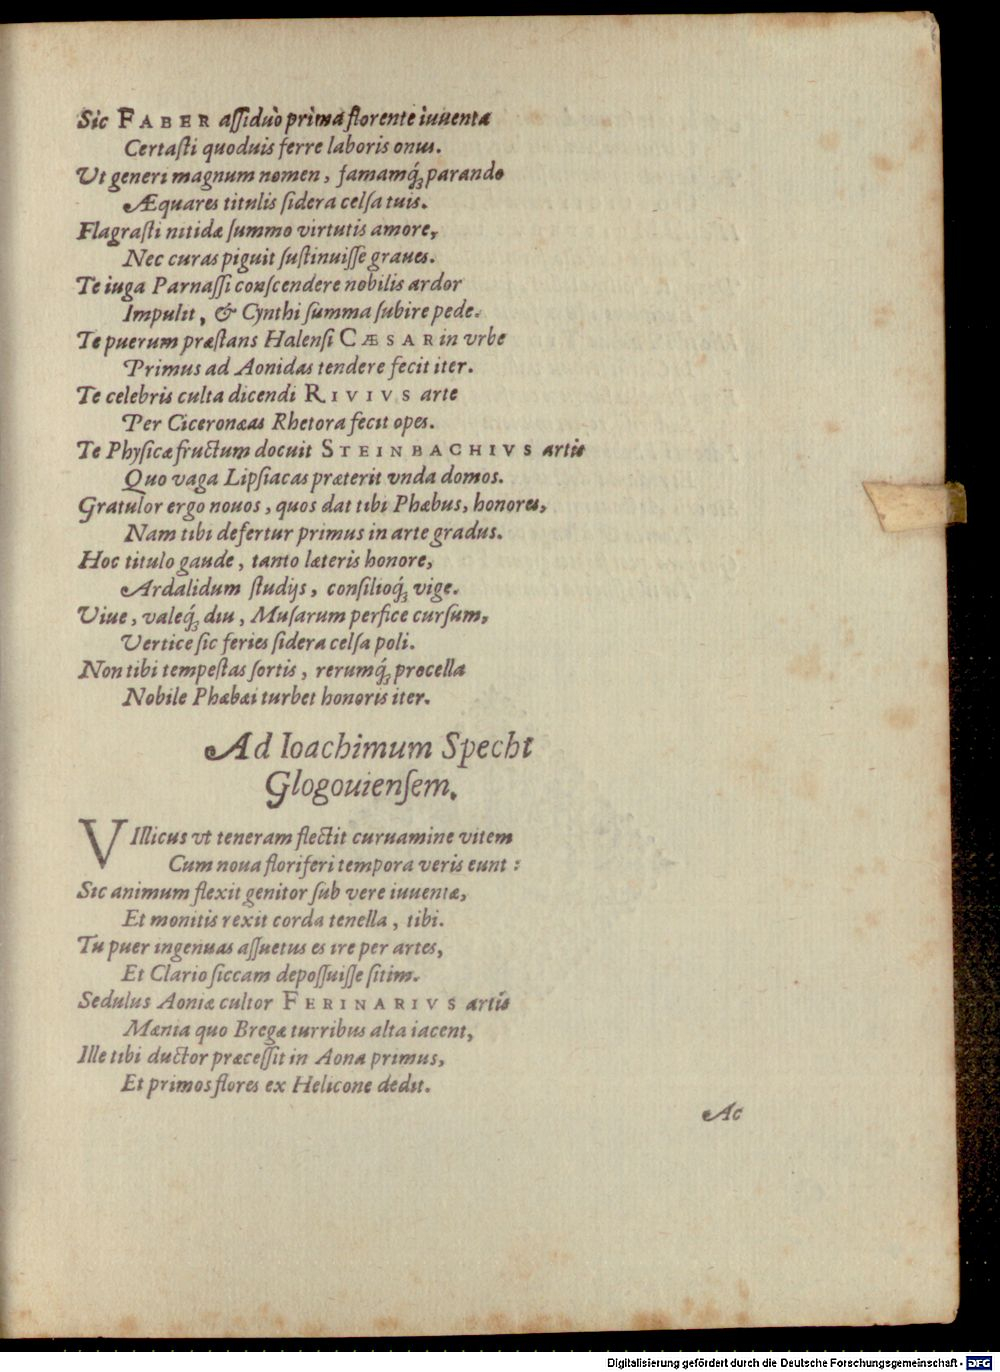 Sic FABER aſſiduò prima florente iuuenta
Certaſti quoduis ferre laboris onus.
Ut generi magnum nomen, famamq́ꝫ parando
Æquares titulis ſidera celſa tuis.
Flagraſti nitidæ ſummo virtutis amore,
Nec curas piguit ſuſtinuiſſe graues.
Te iuga Parnaſſi conſcendere nobilis ardor
Impulit, & Cynthi ſumma ſubire pede.
Te puerum præſtans Halenſi CÆSAR in vrbe
Primus ad Aonidas tendere fecit iter.
Te celebris culta dicendi RIVIVS arte
Per Ciceronæas Rhetora fecit opes.
Te Phyſicæ fructum docuit STEINBACHIVS artis
Quo vaga Lipſiacas præterit vnda domos.
Gratulor ergo nouos, quos dat tibi Phæbus, honores,
Nam tibi defertur primus in arte gradus.
Hoc titulo gaude, tanto læteris honore,
Ardalidum ſtudijs, conſilioq́ꝫ vige.
Uiue, valeq́ꝫ diu, Muſarum perfice curſum,
Vertice ſic feries ſidera celſa poli.
Non tibi tempeſtas ſortis, rerumq́ꝫ procella
Nobile Phæbæi turbet honoris iter.
Ad Ioachimum Specht
Glogouienſem.
VIllicus vt teneram flectit curuamine vitem
Cum noua floriferi tempora veris eunt:
Sic animum flexit genitor ſub vere iuuentæ,
Et monitis rexit corda tenella, tibi.
Tu puer ingenuas aſſuetus es ire per artes,
Et Clario ſiccam depoſſuiſſe ſitim.
Sedulus Aoniæ cultor FERINARIVS artis
Mænia quo Bregæ turribus alta iacent,
Ille tibi ductor præceſſit in Aona primus,
Et primos flores ex Helicone dedit.
Ac
Digitalisierung gefördert durch die Deutsche Forschungsgemeinschaft - DFG